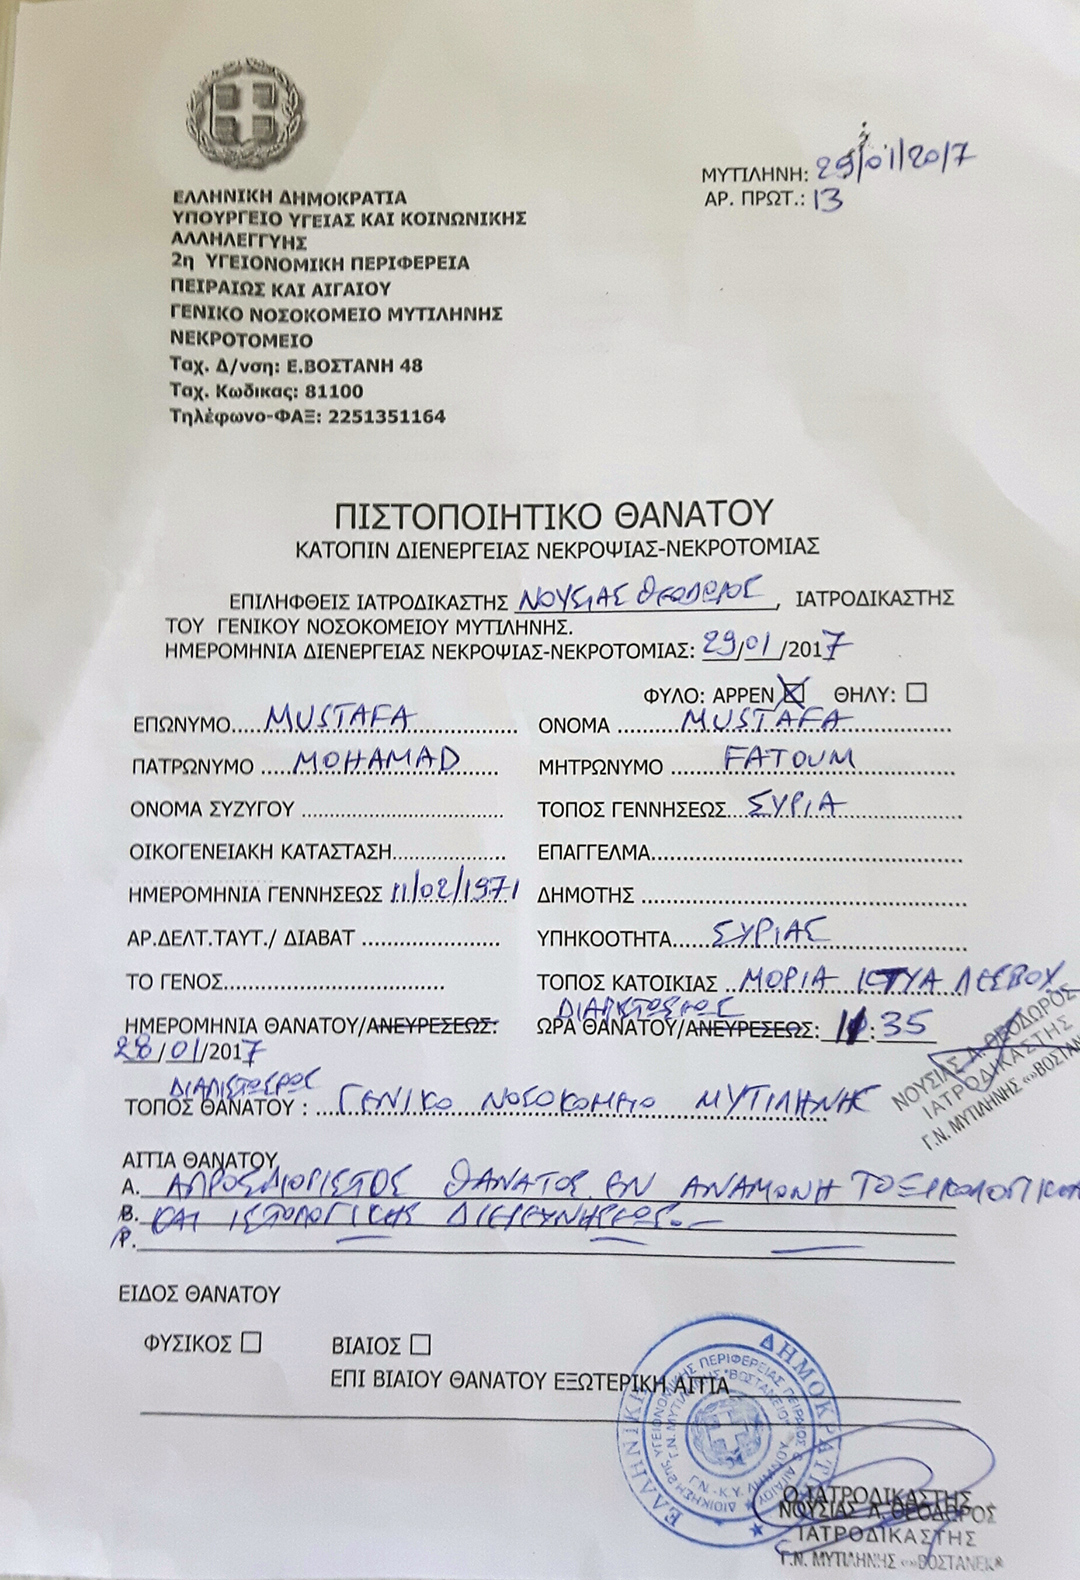 ΜΥΤΙΛΗΝΗ: 29/01/2017
ΑΡ. ΠΡΩΤ.: 13
ΕΛΛΗΝΙΚΗ ΔΗΜΟΚΡΑΤΙΑ
ΥΠΟΥΡΓΕΙΟ ΥΓΕΙΑΣ ΚΑΙ ΚΟΙΝΩΝΙΚΗΣ
ΑΛΛΗΛΕΓΓΥΗΣ
2η ΥΓΕΙΟΝΟΜΙΚΗ ΠΕΡΙΦΕΡΕΙΑ
ΠΕΙΡΑΙΩΣ ΚΑΙ ΑΙΓΑΙΟΥ
ΓΕΝΙΚΟ ΝΟΣΟΚΟΜΕΙΟ ΜΥΤΙΛΗΝΗΣ
ΝΕΚΡΟΤΟΜΕΙΟ
Ταχ. Δ/νση: Ε.ΒΟΣΤΑΝΗ 48
Ταχ. Κωδικας: 81100
Τηλέφωνο-ΦΑΞ: 2251351164
ΠΙΣΤΟΠΟΙΗΤΙΚΟ ΘΑΝΑΤΟΥ
ΚΑΤΟΠΙΝ ΔΙΕΝΕΡΓΕΙΑΣ ΝΕΚΡΟΨΙΑΣ-ΝΕΚΡΟΤΟΜΙΑΣ
ΕΠΙΛΗΦΘΕΙΣ ΙΑΤΡΟΔΙΚΑΣΤΗΣ ΝΟΥΣΙΑΣ ΘΕΟΔΩΡΟΣ, ΙΑΤΡΟΔΙΚΑΣΤΗΣ
ΤΟΥ ΓΕΝΙΚΟΥ ΝΟΣΟΚΟΜΕΙΟΥ ΜΥΤΙΛΗΝΗΣ.
ΗΜΕΡΟΜΗΝΙΑ ΔΙΕΝΕΡΓΕΙΑΣ ΝΕΚΡΟΨΙΑΣ-ΝΕΚΡΟΤΟΜΙΑΣ: 29/01/2017
ΦΥΛΟ: ΑΡΡΕΝ ☒ ΘΗΛΥ: ☐
ΕΠΩΝΥΜΟ.. MUSTAFA ΟΝΟΜΑ MUSTAFA
ΠΑΤΡΩΝΥΜΟ MOHAMAD ΜΗΤΡΩΝΥΜΟ FATOUM
ΟΝΟΜΑ ΣΥΖΥΓΟΥ ΤΟΠΟΣ ΓΕΝΝΗΣΕΩΣ ΣΥΡΙΑ
ΟΙΚΟΓΕΝΕΙΑΚΗ ΚΑΤΑΣΤΑΣΗ ΕΠΑΓΓΕΛΜΑ
ΗΜΕΡΟΜΗΝΙΑ ΓΕΝΝΗΣΕΩΣ 11/02/1971 ΔΗΜΟΤΗΣ
ΑΡ.ΔΕΛΤ.ΤΑΥΤ./ ΔΙΑΒΑΤ ΥΠΗΚΟΟΤΗΤΑ ΣΥΡΙΑΣ
ΤΟ ΓΕΝΟΣ ΤΟΠΟΣ ΚΑΤΟΙΚΙΑΣ ΜΟΡΙΑ ΛΕΣΒΟΥ
ΔΙΑΠΙΣΤΩΣΕΩΣ
ΗΜΕΡΟΜΗΝΙΑ ΘΑΝΑΤΟΥ/ΑΝΕΥΡΕΣΕΩΣ: ΩΡΑ ΘΑΝΑΤΟΥ/ΑΝΕΥΡΕΣΕΩΣ: :35
28/01/2017
ΔΙΑΠΙΣΤΩΣΕΩΣ
ΤΟΠΟΣ ΘΑΝΑΤΟΥ : ΓΕΝΙΚΟ ΝΟΣΟΚΟΜΕΙΟ ΜΥΤΙΛΗΝΗΣ
ΝΟΥΣΙΑΣ Λ. ΘΕΟΔΩΡΟΣ
ΙΑΤΡΟΔΙΚΑΣΤΗΣ
Γ.Ν. ΜΥΤΙΛΗΝΗΣ «»ΒΟΣΤΑΝΕ
ΑΙΤΙΑ ΘΑΝΑΤΟΥ
Α. ΑΠΡΟΣΔΙΟΡΙΣΤΟΣ ΘΑΝΑΤΟΣ ΕΝ ΑΝΑΜΟΝΗ ΤΟΞΙΚΟΛΟΓΙΚΗΣ
Β. ΚΑΙ ΙΣΤΟΛΟΓΙΚΗΣ ΔΙΕΡΕΥΝΗΣΕΩΣ.
Γ.
ΕΙΔΟΣ ΘΑΝΑΤΟΥ
ΦΥΣΙΚΟΣ ☐ ΒΙΑΙΟΣ ☐
ΕΠΙ ΒΙΑΙΟΥ ΘΑΝΑΤΟΥ ΕΞΩΤΕΡΙΚΗ ΑΙΤΙΑ
ΕΛΛΗΝΙΚΗ ΔΗΜΟΚΡΑΤΙΑ
ΔΙΟΙΚΗΣΗ 2ης ΥΓΕΙΟΝΟΜΙΚΗΣ ΠΕΡΙΦΕΡΕΙΑΣ ΠΕΙΡΑΙΩΣ & ΑΙΓΑΙΟΥ
Γ.Ν. ΜΥΤΙΛΗΝΗΣ "ΒΟΣΤΑΝΕΙΟ"
Ο ΙΑΤΡΟΔΙΚΑΣΤΗΣ
ΝΟΥΣΙΑΣ Λ. ΘΕΟΔΩΡΟΣ
ΙΑΤΡΟΔΙΚΑΣΤΗΣ
Γ.Ν. ΜΥΤΙΛΗΝΗΣ «»ΒΟΣΤΑΝΕΙ